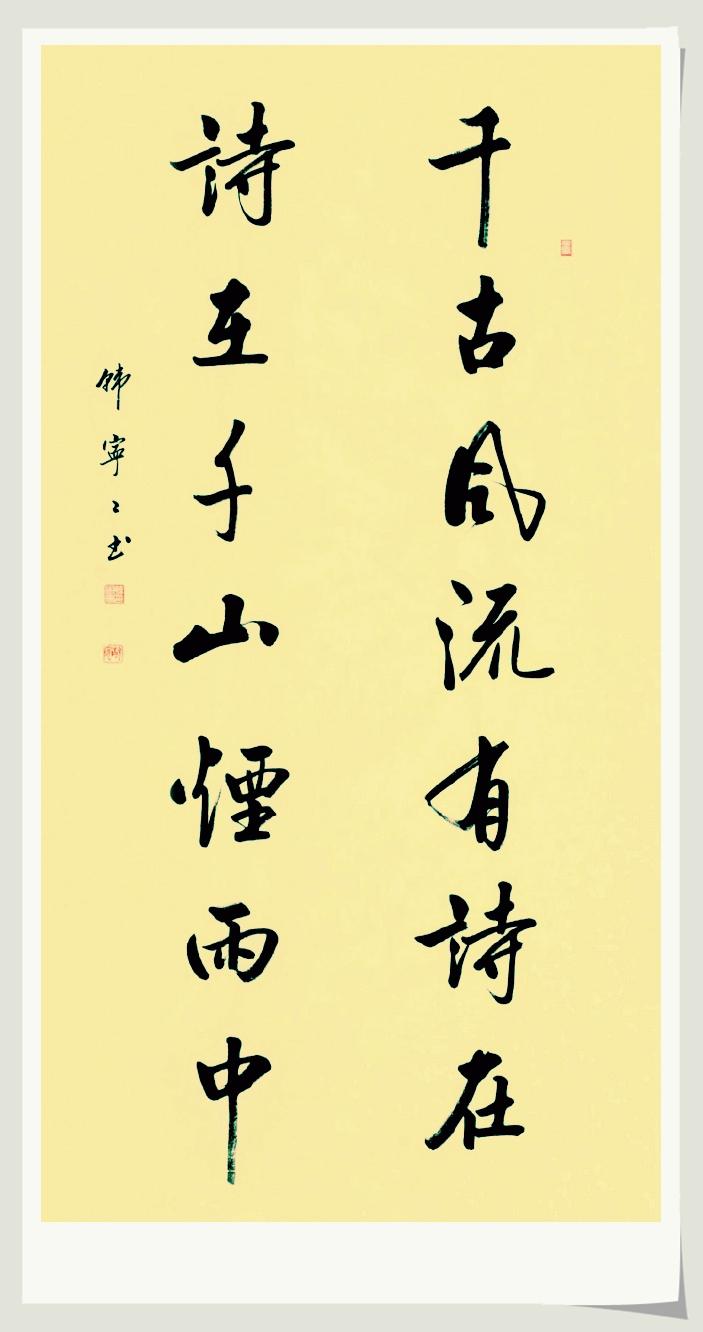 千古風流有詩在
詩在千山煙雨中
韓寧〻书